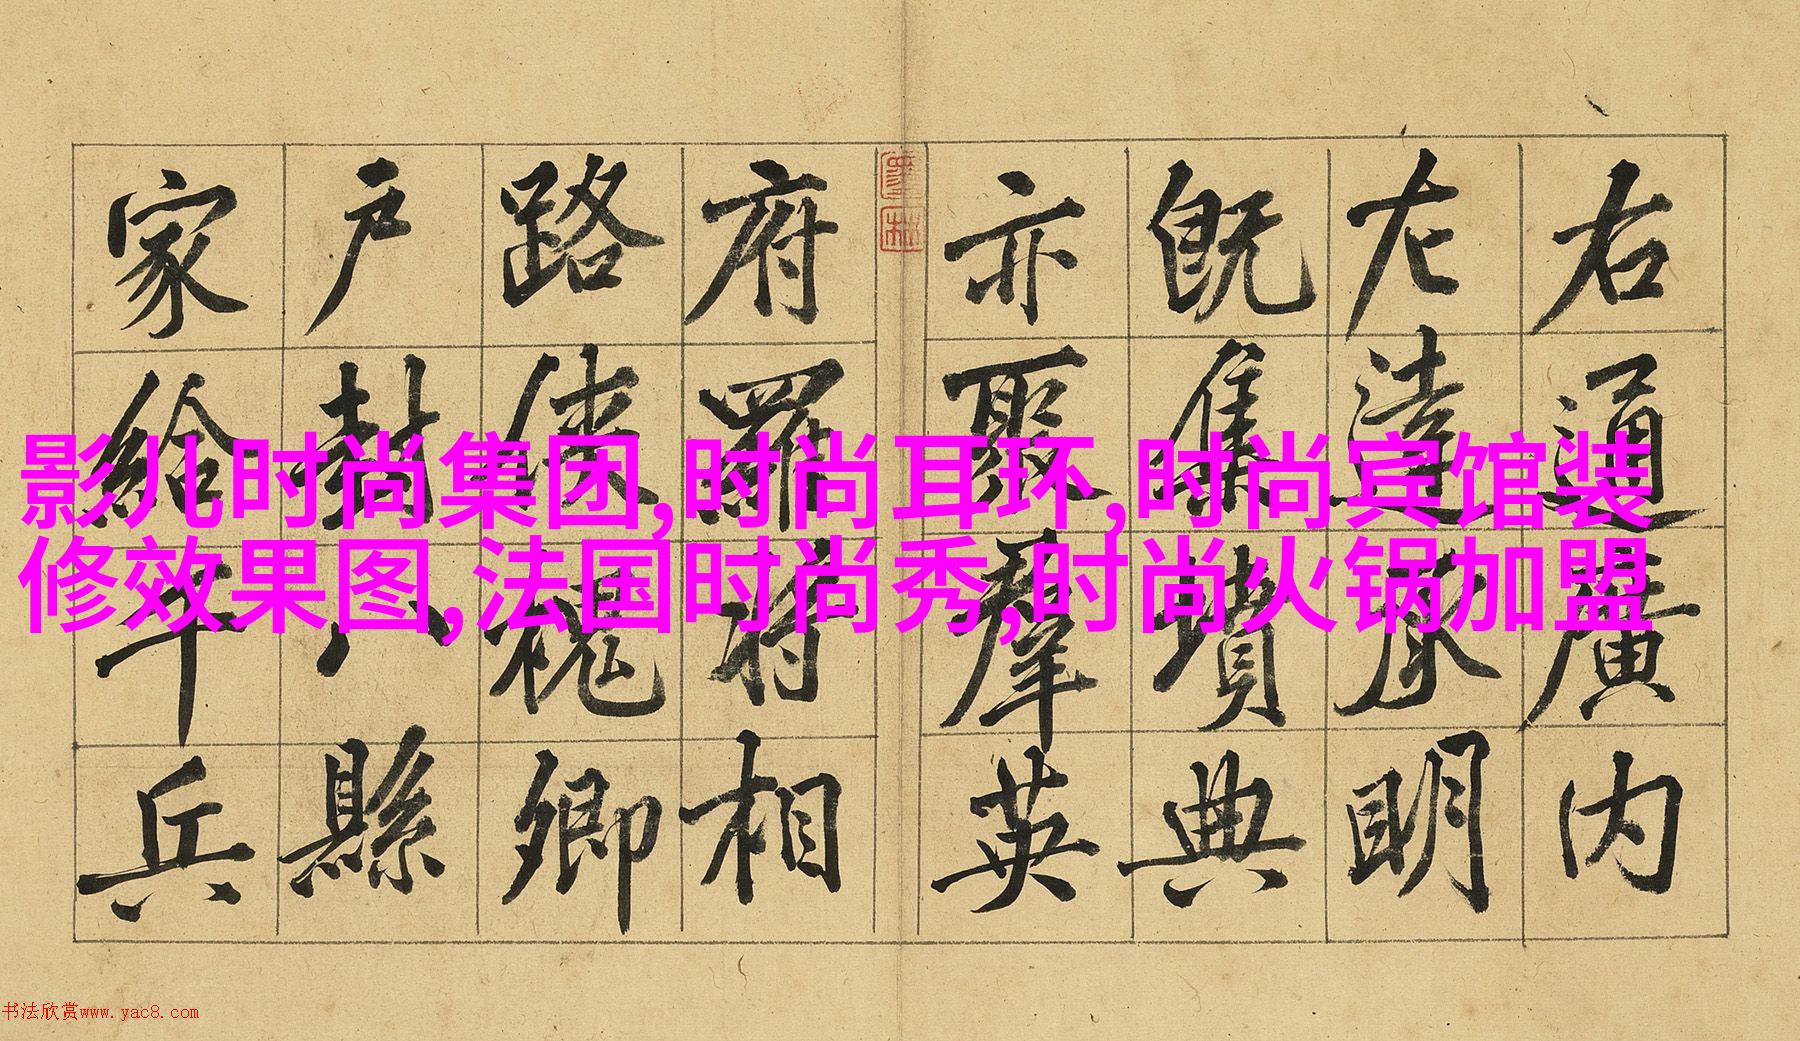 右通廣内
左達承明
既集墳典
亦聚羣英
府羅将相
路俠槐卿
户封八縣
家給千兵
影儿时尚集团,时尚耳环,时尚宾馆装
修效果图,法国时尚秀,时尚火锅加盟
书法欣赏www.yac8.com